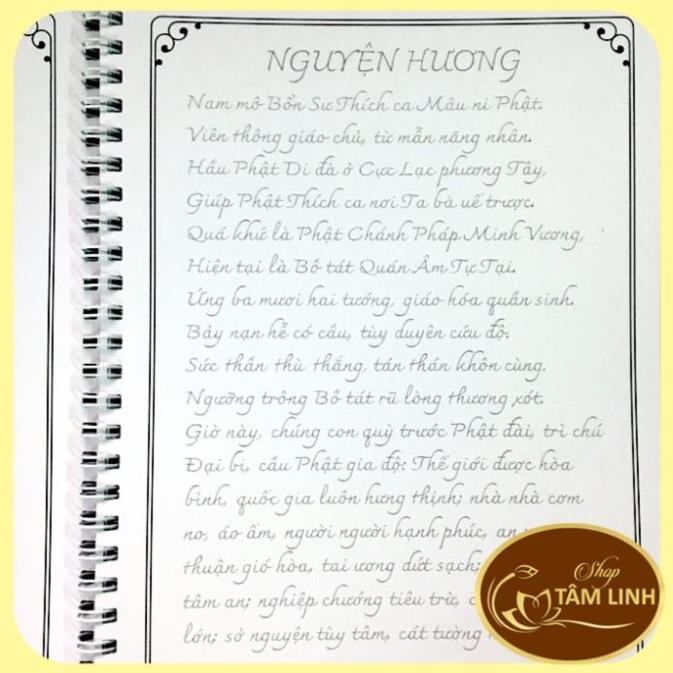 NGUYỆN HƯƠNG
Nam mô Bổn Sư Thích ca Mâu ni Phật.
Viên thông giáo chủ, từ mẫn năng nhân.
Hầu Phật Di đà ở Cực Lạc phương Tây,
Giúp Phật Thích ca nơi Ta bà uế trược.
Quá khứ là Phật Chánh Pháp Minh Vương,
Hiện tại là Bồ tát Quán Âm Tự Tại.
Ứng ba mươi hai tướng, giáo hóa quần sinh.
Bảy nạn hễ có cầu, tùy duyên cứu độ.
Sức thần thù thắng, tán thán khôn cùng.
Ngưỡng trông Bồ tát rũ lòng thương xót.
Giờ này, chúng con quỳ trước Phật đài, trì chú
Đại bi, cầu Phật gia độ: Thế giới được hòa
bình, quốc gia luôn hưng thịnh; nhà nhà cơm
no, áo ấm, người người hạnh phúc, an
thuận gió hòa, tai ương dứt sạch;
tâm an; nghiệp chướng tiêu trừ,
lớn; sở nguyện tùy tâm, cát tường
Shop
TÂM LINH